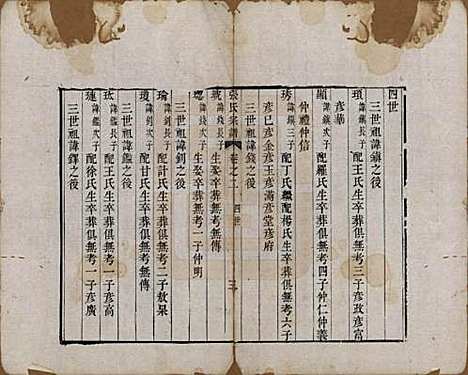 四世
三世祖諱鎮之後
瑣 諱鎮次子 配王氏生卒葬俱無考三子彥政彥富
彥華
顯 諱鎮次子 配羅氏生卒葬俱無考四子仲仁仲義
仲禮仲信
琇 諱鎮三子 配丁氏繼配楊氏生卒葬俱無考六子
彥已彥金彥玉彥滿彥堂彥府
三世祖諱錢之後
張氏宗譜 卷之二 四世 三
珷 諱錢長子 生娶卒葬無考
璁 諱錢次子 生娶卒葬無考一子仲明
三世祖諱釗之後
瑜 諱釗長子 配計氏生卒葬俱無考二子敖杲
瓊 諱釗次子 配甘氏生卒葬俱無考無傳
三世祖諱鑑之後
玹 諱鑑長子 配王氏生卒葬俱無考一子彥高
璉 諱鑑次子 配徐氏生卒葬俱無考一子彥廣
三世祖諱鐸之後